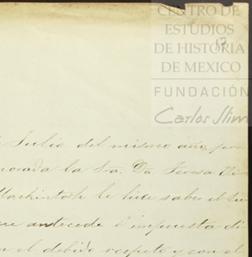 CENTRO DE
ESTUDIOS
DE HISTORIA
DE MEXICO
FUNDACIÓN
Carlos Slim
Julio del mismo año
la Sra. Da. Teresa
Mackintosh le hice saber el
que antecede é impuesta de
el debido respeto y con el